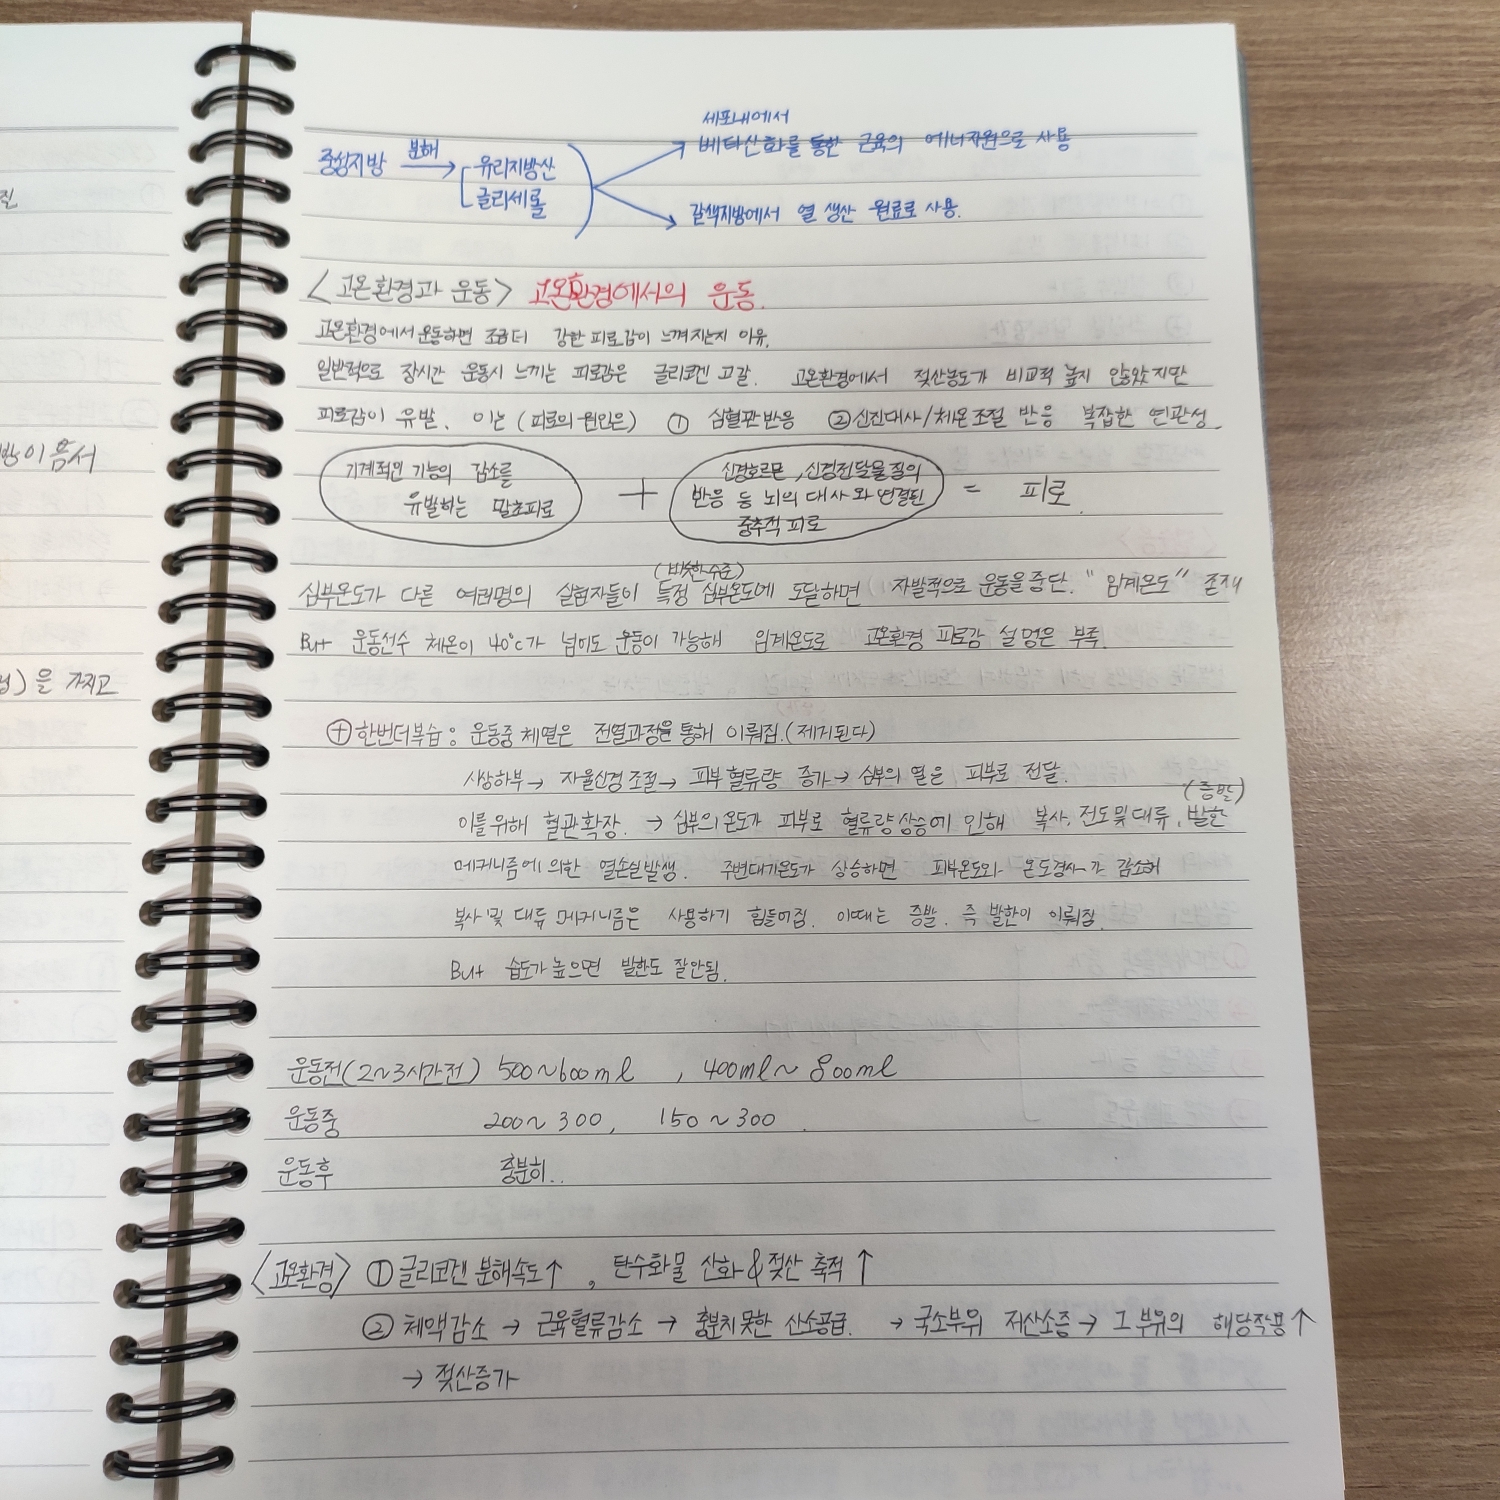 세포내에서
중성지방 분해→ 유리지방산 베타산화를 통한 근육의 에너지원으로 사용
글리세롤 갈색지방에서 열 생산 원료로 사용.
<고온환경과 운동> 고온환경에서의 운동.
고온환경에서 운동하면 조금더 강한 피로감이 느껴지는지 이유.
일반적으로 장시간 운동시 느끼는 피로감은 글리코겐 고갈. 고온환경에서 젖산농도가 비교적 높지 않았지만
피로감이 유발. 이는 (피로의 원인은) ① 심혈관반응 ②신진대사/체온조절 반응 복잡한 연관성.
기계적인 기능의 감소를
유발하는 말초피로
+
신경호르몬, 신경전달물질의
반응 등 뇌의 대사와 연결된
중추적 피로
= 피로.
(비슷한수준)
심부온도가 다른 여러명의 실험자들이 특정 심부온도에 도달하면 자발적으로 운동을 중단. "임계온도" 존재
But 운동선수 체온이 40℃가 넘어도 운동이 가능해 임계온도로 고온환경 피로감 설명은 부족.
⊕한번더복습 : 운동중 체열은 전열과정을 통해 이뤄짐.(제거된다)
시상하부→ 자율신경조절→ 피부혈류량 증가→ 심부의 열은 피부로 전달.
(증발)
이를위해 혈관확장. → 심부의온도가 피부로 혈류량상승에 인해 복사, 전도 및 대류, 발한
메커니즘에 의한 열손실발생. 주변대기온도가 상승하면 피부온도와 온도경사가 감소해
복사 및 대류 메커니즘은 사용하기 힘들어짐. 이때는 증발. 즉 발한이 이뤄짐.
But 습도가 높으면 발한도 잘안됨.
운동전(2~3시간전) 500~600ml , 400ml~800ml
운동중 200~300, 150~300.
운동후 충분히..
<고온환경> ①글리코겐 분해속도↑ , 탄수화물 산화&젖산 축적↑
② 체액감소 → 근육혈류감소 → 충분치못한 산소공급. → 국소부위 저산소증→ 그 부위의 해당작용↑
→ 젖산증가
질
방이 음서
을 가지고